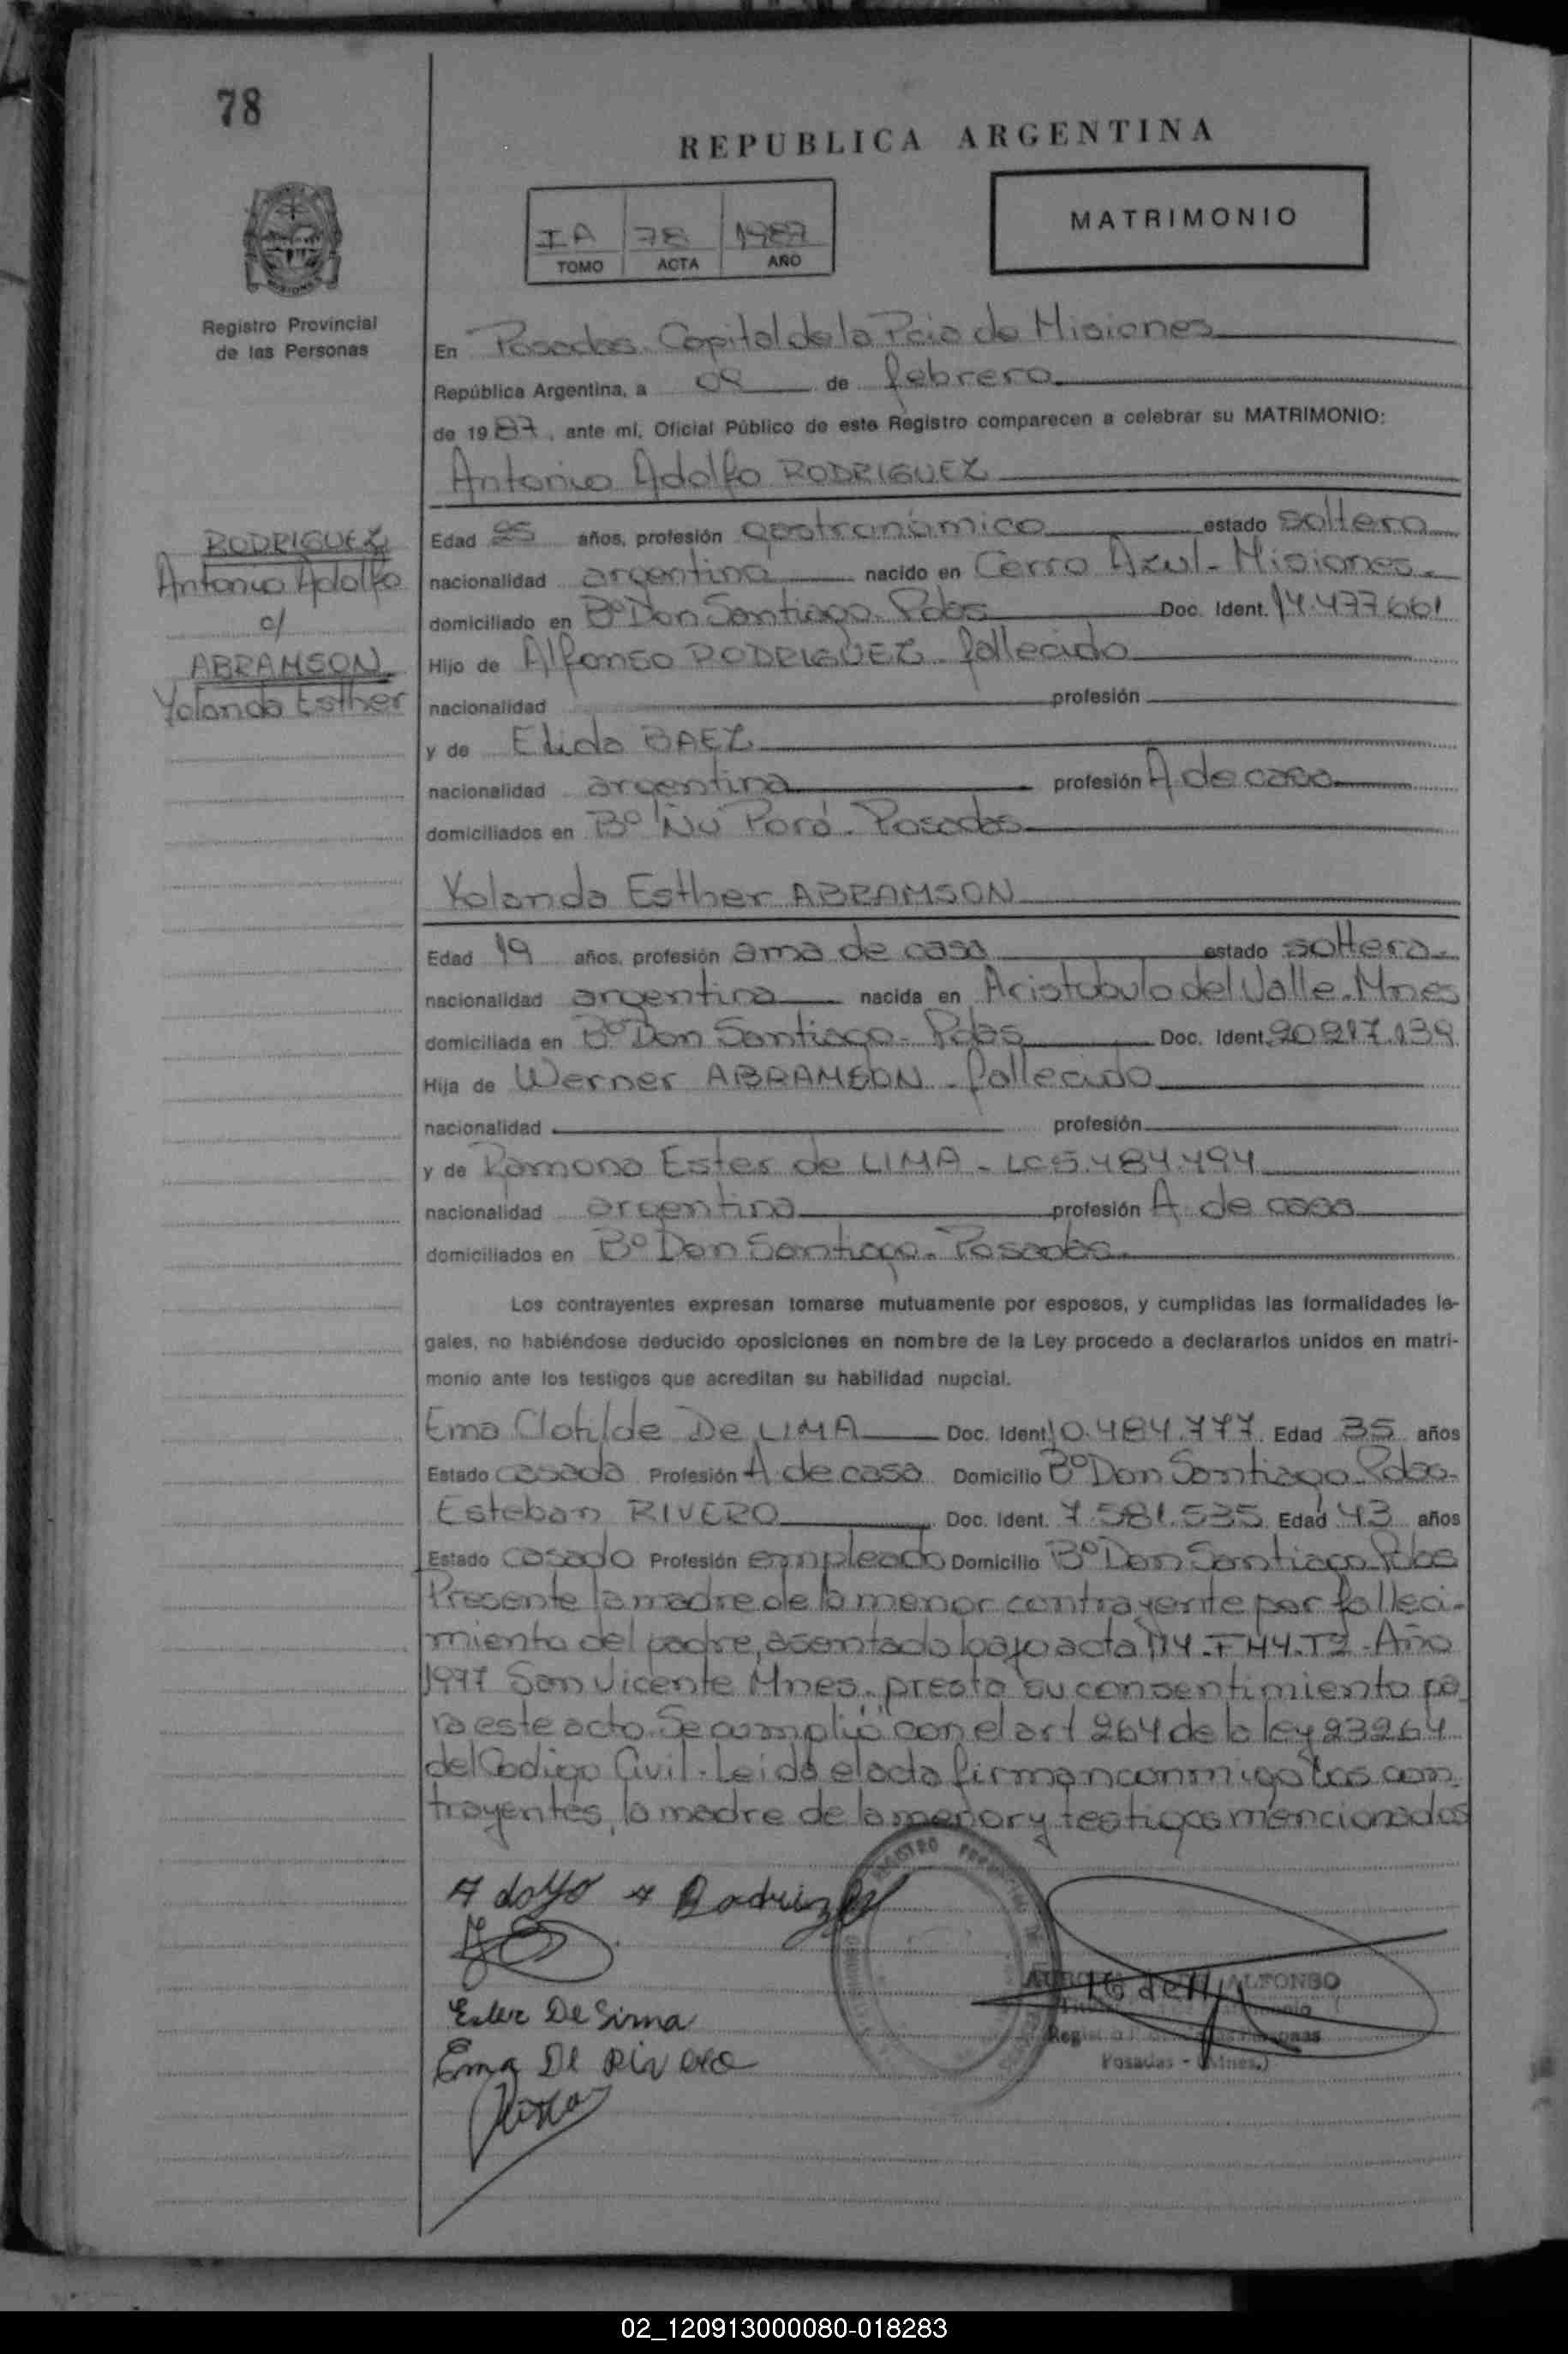 78
REPUBLICA ARGENTINA
MATRIMONIO
IA 78 1987
TOMO ACTA AÑO
Registro Provincial
de las Personas
En Posadas. Capital de la Pcia de Misiones
República Argentina, a de febrero
de 1987, ante mi, Oficial Público de este Registro comparecen a celebrar su MATRIMONIO:
Antonio Adolfo RODRIGUEZ
RODRIGUEZ
Antonio Adolfo
c/
ABRAMSON
Yolanda Esther
Edad 25 años, profesión gastronómico estado soltero
nacionalidad argentina nacido en Cerro Azul - Misiones.
domiciliado en Bº Don Santiago. Pdas Doc. Ident. 14.477.661
Hijo de Alfonso RODRIGUEZ - fallecido
nacionalidad profesión
y de Elida BAEZ
nacionalidad argentina profesión A de casa
domiciliados en Bº Ñu Porá. Posadas
Yolanda Esther ABRAMSON
Edad 19 años, profesión ama de casa estado soltera.
nacionalidad argentina nacida en Aristobulo del Valle. Mnes
domiciliada en Bº Don Santiago - Pdas Doc. Ident. 20.217.139
Hija de Werner ABRAMSON - fallecido
nacionalidad profesión
y de Ramona Ester de LIMA - LC 5.484.494
nacionalidad argentina profesión A. de casa
domiciliados en Bº Don Santiago. Posadas.
Los contrayentes expresan tomarse mutuamente por esposos, y cumplidas las formalidades le-
gales, no habiéndose deducido oposiciones en nombre de la Ley procedo a declararlos unidos en matri-
monio ante los testigos que acreditan su habilidad nupcial.
Ema Clotilde De LIMA Doc. Ident. 10.484.777 Edad 35 años
Estado casada Profesión A de casa Domicilio Bº Don Santiago. Pdas.
Esteban RIVERO Doc. Ident. 7.581.535 Edad 43 años
Estado casado Profesión empleado Domicilio Bº Don Santiago Pdas
Presente la madre de la menor contrayente por falleci-
miento del padre, asentado bajo acta 114. F 144. T2 - Año
1977 San Vicente Mnes. presta su consentimiento pa
ra este acto. Se cumplió con el art 264 de la ley 23264
del Codigo Civil. Leida el acta firman conmigo los con
trayentes, la madre de la menor y testigos mencionados
Adolfo A Rodriguez
Ester De Lima
Ema De Rivero
REGISTRO
ALFONSO
Posadas - (Mnes.)
02_120913000080-018283